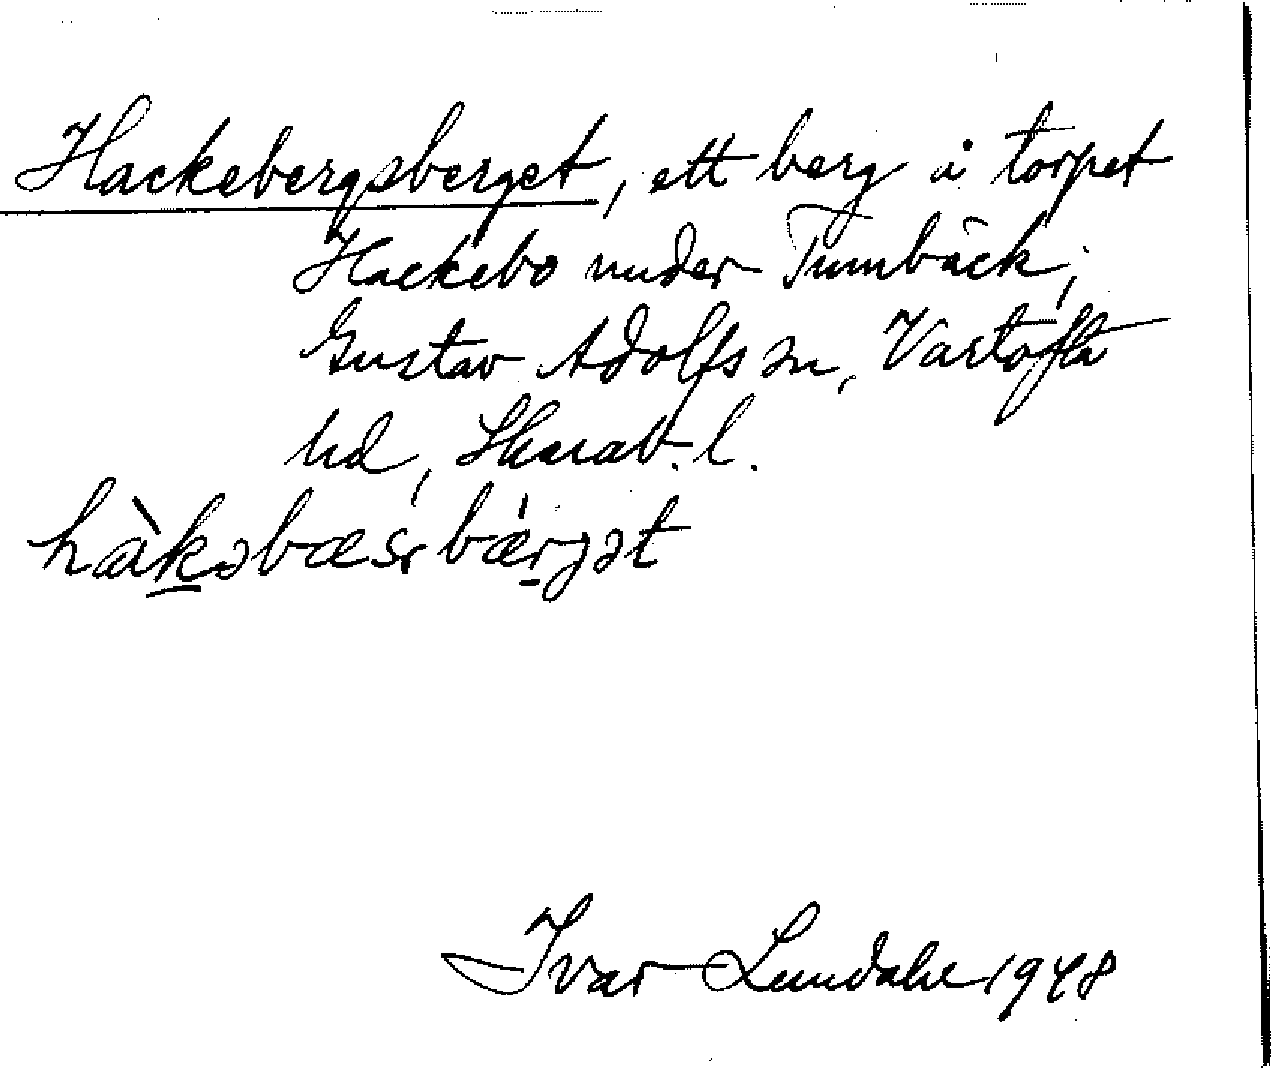 Hackebergsberget, ett berg å torpet
Hackebo under Tumbäck,
Gustav Adolfs sn, Vartofta
hd, Skarab. l.
hàkəbæsrbærgət
Ivar Lundahl 1948